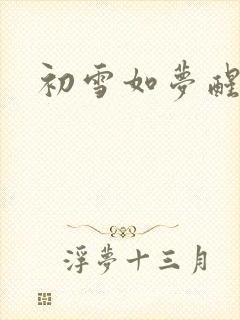 初雪如夢醒
浮夢十三月